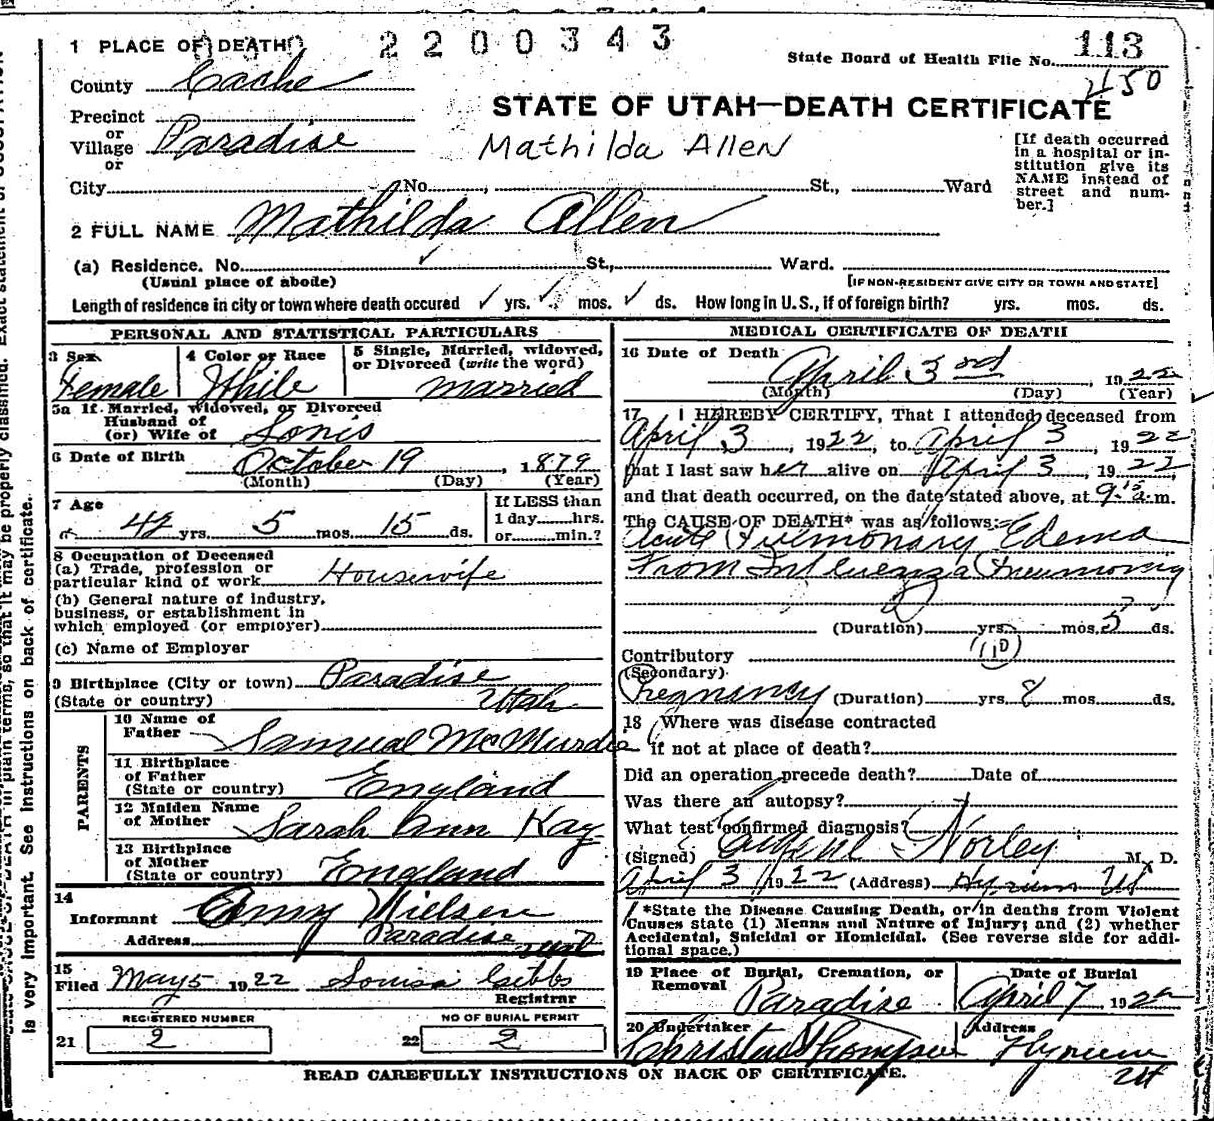 1 PLACE OF DEATH
2200343
State Board of Health File No. 113
450
County Cache
STATE OF UTAH—DEATH CERTIFICATE
Precinct
or
Village Paradise
or
Mathilda Allen
[If death occurred
in a hospital or in-
stitution give its
NAME instead of
street and num-
ber.]
City No. St., Ward
2 FULL NAME Mathilda Allen
(a) Residence. No. St., Ward.
(Usual place of abode) [IF NON-RESIDENT GIVE CITY OR TOWN AND STATE]
Length of residence in city or town where death occured yrs. mos. ds. How long in U. S., if of foreign birth? yrs. mos. ds.
PERSONAL AND STATISTICAL PARTICULARS
3 Sex 4 Color or Race 5 Single, Married, widowed,
or Divorced (write the word)
Female White married
5a If Married, widowed, or Divorced
Husband of
(or) Wife of
6 Date of Birth October 19, 1879
(Month) (Day) (Year)
7 Age If LESS than
1 day hrs.
42 yrs. 5 mos. 15 ds. or min.?
8 Occupation of Deceased
(a) Trade, profession or
particular kind of work Housewife
(b) General nature of industry,
business, or establishment in
which employed (or employer)
(c) Name of Employer
9 Birthplace (City or town) Paradise
(State or country) Utah
PARENTS
10 Name of
Father Samual McMurdie
11 Birthplace
of Father
(State or country) England
12 Maiden Name
of Mother Sarah Ann Kay
13 Birthplace
of Mother
(State or country) England
14
Informant Amy Nielsen
Address Paradise
15
Filed May 5 1922 Louisa Gibbs
Registrar
REGISTERED NUMBER NO OF BURIAL PERMIT
21 2 22 2
MEDICAL CERTIFICATE OF DEATH
16 Date of Death April 3rd, 1922
(Month) (Day) (Year)
17 I HEREBY CERTIFY, That I attended deceased from
April 3, 1922, to April 3, 1922
that I last saw her alive on April 3, 1922
and that death occurred, on the date stated above, at 9:15 a.m.
The CAUSE OF DEATH* was as follows:
Acute Pulmonary Edema
From Influenza Pneumonia
(Duration) yrs. mos. 5 ds.
Contributory
(Secondary)
Pregnancy (Duration) yrs. 8 mos. ds.
18 Where was disease contracted
if not at place of death?
Did an operation precede death? Date of
Was there an autopsy?
What test confirmed diagnosis?
(Signed) Eugene Worley M. D.
April 3 1922 (Address) Hyrum Ut
*State the Disease Causing Death, or in deaths from Violent
Causes state (1) Menns and Nature of Injury; and (2) whether
Accidental, Suicidal or Homicidal. (See reverse side for addi-
tional space.)
19 Place of Burial, Cremation, or Date of Burial
Removal
Paradise April 7 1922
20 Undertaker Address
Thompson Hyrum
Ut
READ CAREFULLY INSTRUCTIONS ON BACK OF CERTIFICATE.
in plain terms, so that it may be properly classified. Exact statement of
is very important. See instructions on back of certificate.